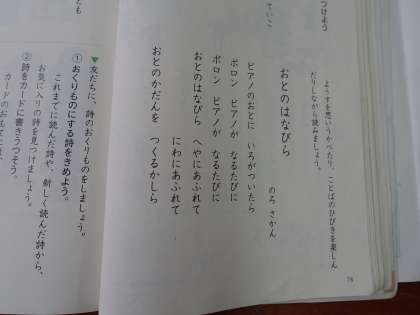 つけよう
ようすを思いうかべたり、ことばのひびきを楽しん
だりしながら読みましょう。
おとのはなびら
のろ さかん
ピアノのおとに いろがついたら
ポロン ピアノが なるたびに
ポロン ピアノが なるたびに
おとのはなびら へやにあふれて
にわにあふれて
おとのかだんを つくるかしら
76
ていこ
▼友だちに、詩のおくりものをしましょう。
①おくりものにする詩をきめよう。
これまでに読んだ詩や、新しく読んだ詩から、
お気に入りの詩を見つけましょう。
②詩をカードに書きうつそう。
カードのおもてには、
とも